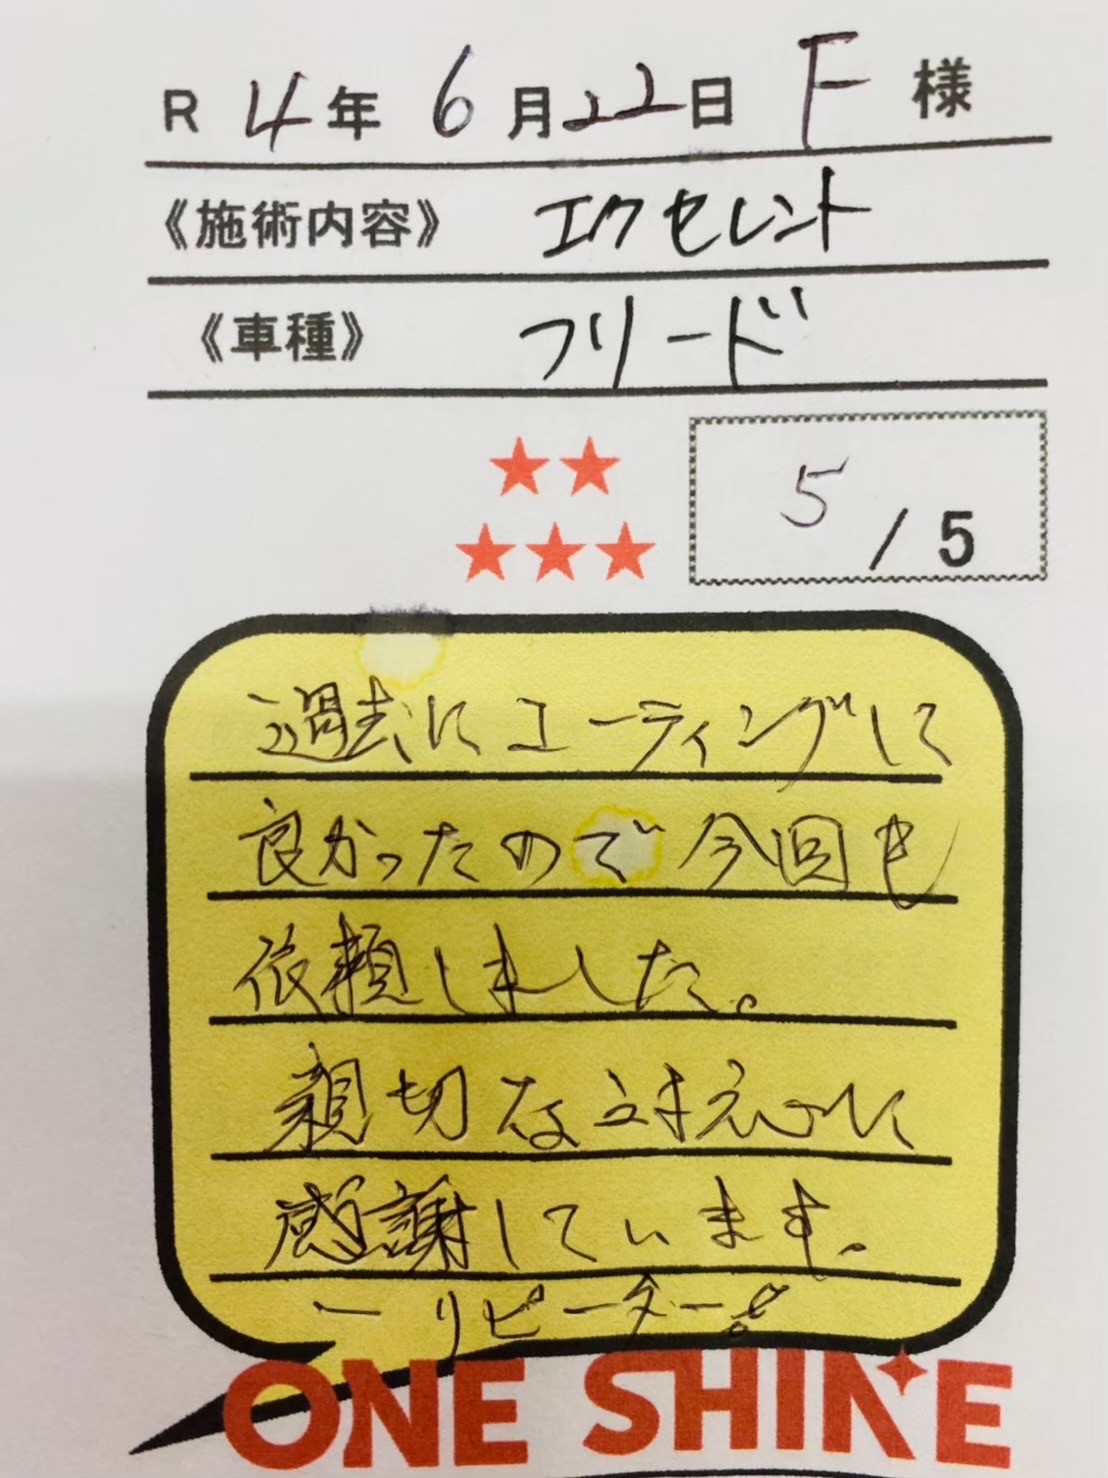 R 4年 6月22日 F 様
《施術内容》 エクセレント
《車種》 フリード
5 / 5
過去にコーティングして
良かったので今回も
依頼しました。
親切な対応に
感謝しています。
ーリピーターー!
ONE SHINE